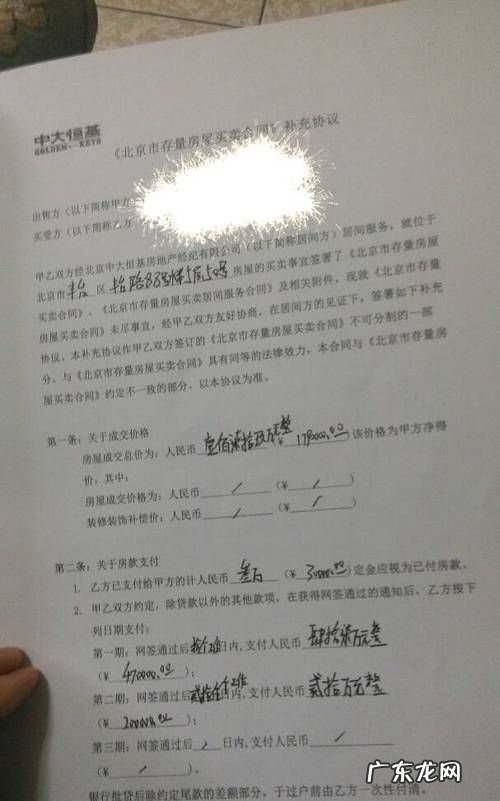 中大恒基
GOLDEN KEYS
《北京市存量房屋买卖合同》补充协议
出售方（以下简称甲方
买受方（以下简称乙方
甲乙双方经北京中大恒基房地产经纪有限公司（以下简称居间方）居间服务，就位于
北京市丰台区 房屋的买卖事宜签署了《北京市存量房屋
买卖合同》、《北京市存量房屋买卖居间服务合同》及相关附件，现就《北京市存量
房屋买卖合同》未尽事宜，经甲乙双方友好协商，在居间方的见证下，签署如下补充
协议，本补充协议作甲乙双方签订的《北京市存量房屋买卖合同》不可分割的一部
分，与《北京市存量房屋买卖合同》具有同等的法律效力，本合同与《北京市存量房
屋买卖合同》约定不一致的部分，以本协议为准。
第一条：关于成交价格
房屋成交总价为：人民币 （¥ ）该价格为甲方净得
价，其中：
房屋成交价格为：人民币 / （¥ / ）
装修装饰补偿价：人民币 / （¥ / ）
第二条：关于房款支付
1. 乙方已支付给甲方的计人民币 叁万 （¥ 30000.00）定金应视为已付房款。
2. 甲乙双方约定，除贷款以外的其他款项，在获得网签通过的通知后，乙方按下
列日期支付：
第一期：网签通过后 日内，支付人民币 肆拾柒万元整
（¥ 470000.00）；
第二期：网签通过后 日内，支付人民币 贰拾万元整
（¥ 200000.00）；
第三期：网签通过后 / 日内，支付人民币 /
（¥ / ）。
银行批贷后除约定尾款的差额部分，于过户前由乙方一次性付清。
广东龙网